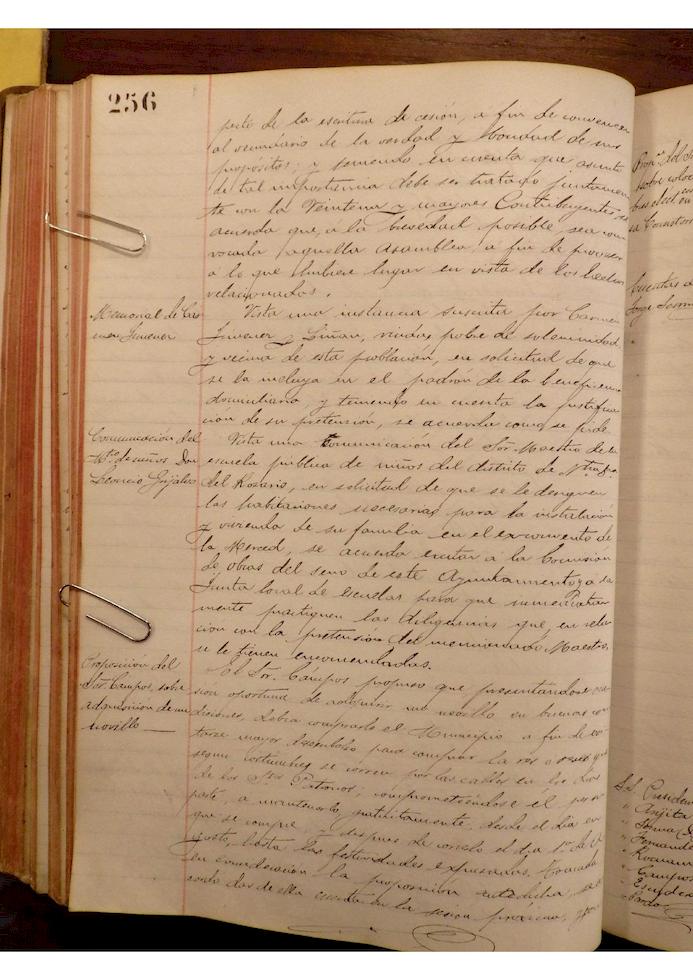 256
pecto de la escritura de cesión, a fin de convencer
al vecindario de la verdad y bondad de sus
propósitos; y teniendo en cuenta que asunto
de tal importancia debe ser tratado juntamen
te con la Veintena y mayores Contribuyentes se
acuerda que, a la brevedad posible sea con
vocada aquella Asamblea a fin de proveer
a lo que hubiere lugar en vista de los hechos
relacionados.
Memorial de Car
men Jimenez
Vista una instancia suscrita por Carmen
Jimenez y Liñan, viuda, pobre de solemnidad
y vecina de esta población, en solicitud de que
se la incluya en el padrón de la beneficen
domiciliaria, y teniendo en cuenta la justifica
ción de su pretensión, se acuerda como se pide.
Comunicación del
Mtro. de niños Don
Leoncio Grijalvo
Vista una comunicación del Sor. Maestro de la
escuela pública de niños del distrito de Ntra. Sra.
del Rosario, en solicitud de que se le designen
las habitaciones necesarias para la instalación
y vivienda de su familia en el exconvento de
la Merced, se acuerda excitar a la Comisión
de obras del seno de este Ayuntamiento y a la
Junta local de escuelas para que inmediatam
mente practiquen las diligencias que, en rela
ción con la pretensión del mencionado Maestro,
se le tienen encomendadas.
Proposición del
Sor. Campos, sobre
adquisicion de un
novillo
El Sor. Campos propuso que presentándose oca
sion oportuna de adquirir un novillo en buenas con
diciones, debia comprarlo el Municipio a fin de evi
tarse mayor desembolso para comprar la res o reses que
segun costumbre se corren por las calles en los dias
de los Stos Patronos; comprometiéndose él por su
parte, a mantenerlo, gratuitamente, desde el dia en
que se compre, y despues de correrlo el dia 1º de A
gosto, hasta las festividades expresadas. Tomada
en consideración la proposicion antedicha, se a
cordó dar de ella cuenta en la sesion próxima,
Cuentas d
Jorge
S.S. Presiden
" Anjita
" Fernande
" Campos
" Escude
" Pardo